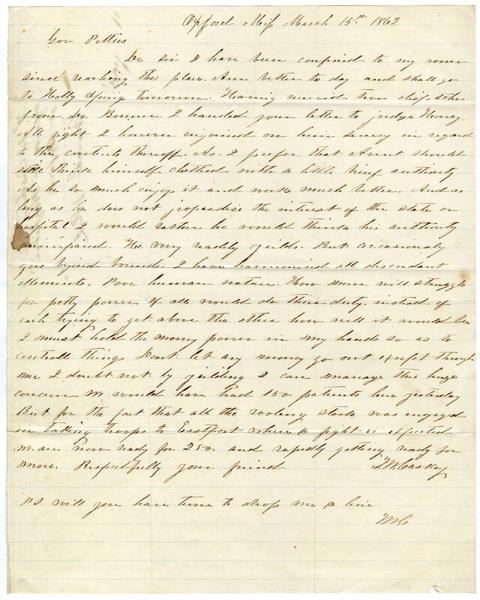 Oxford Miss March 15th 1862
Gov Pettus
Dr sir I have been confined to my room
since reaching this place. Am better to day and shall go
to Holly Springs tomorrow. Having received two dispatches
from Dr Bonner I handed your letter to judge
All right I however enjoined on him secrecy in regard
to the contents thereoff. As I prefer that should
still think himself clothed with a little brief authority
As he so much enjoys it and works much better. And as
long as he does not jeopardise the interest of the state or
hospital I would rather he would think his authority
unimpaired. He very readily yields. But occasionaly
goes beyond bounds I have harmonised all discordant
elliments. Poor human nature. How men will struggle
for petty power if all would do their duty instead of
each trying to get above the other how well it would be
I must hold the money power in my hands so as to
controll things Dont let any money go out except through
me I doubt not by yielding I can manage this huge
concern We would have had 150 patients here yesterday
But for the fact that all the rooling stock was engaged
in taking troops to Eastport where a fight is expected
We are now ready for 250 and rapidly getting ready for
more. Respectfully your friend T W Caskey
P S will you have time to drop me a line
T W C